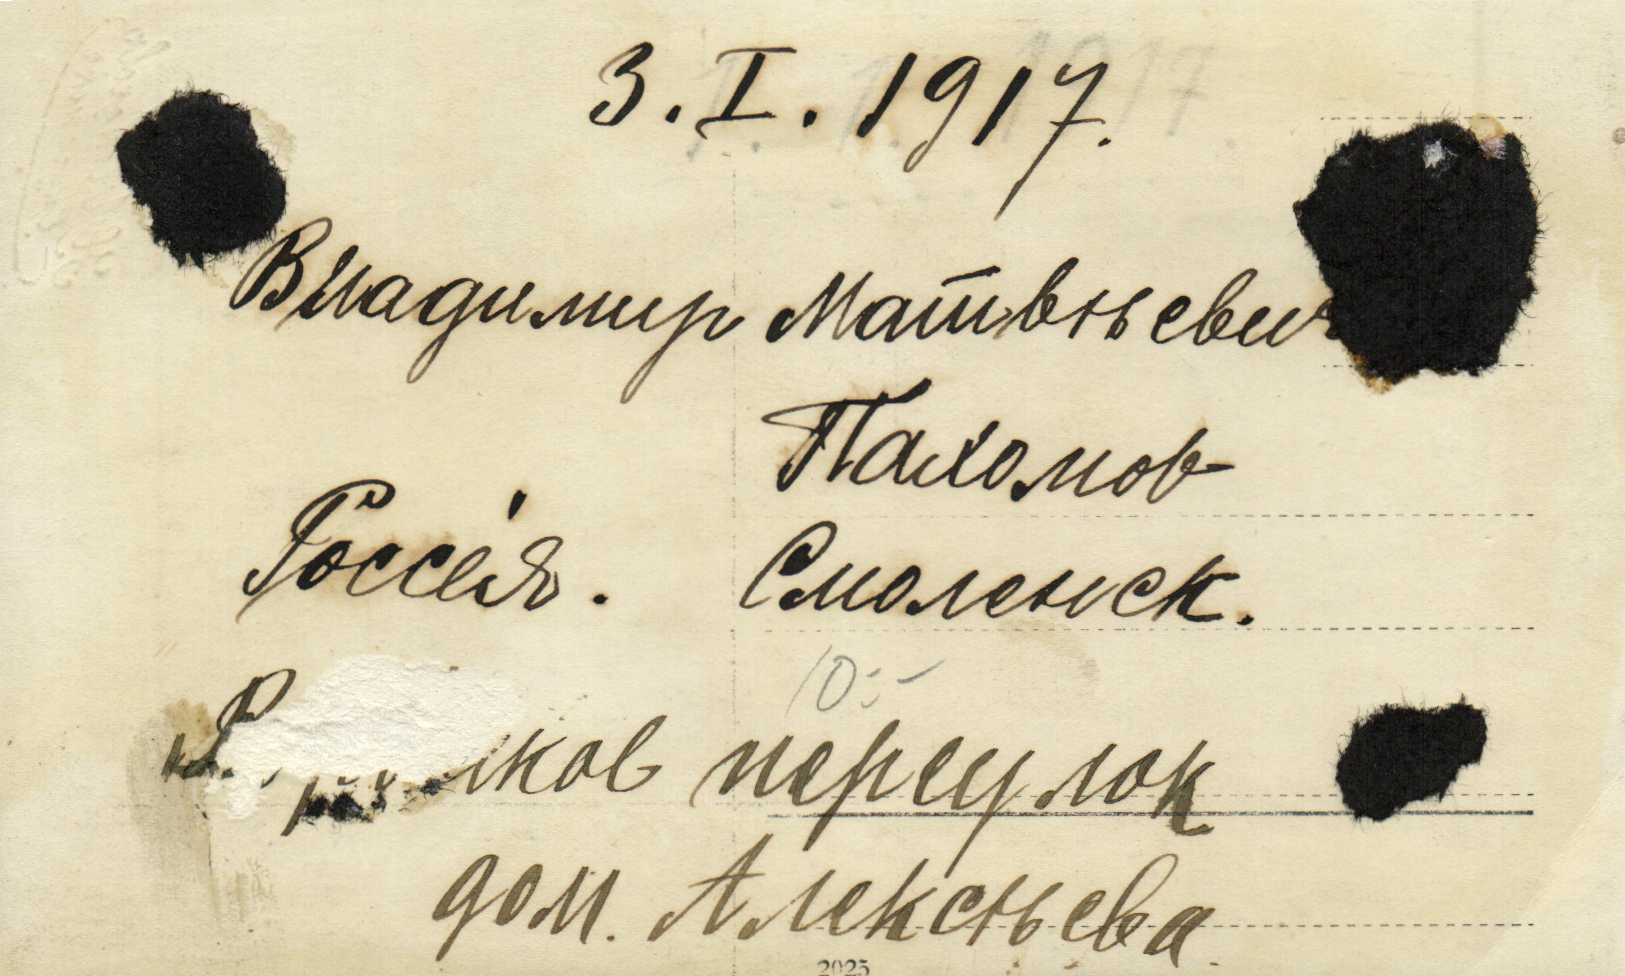 3.I.1917.
Владимир Матвѣевич
Пахомов
Россія. Смоленск.
10:-
переулок
дом. Алексѣева
2025